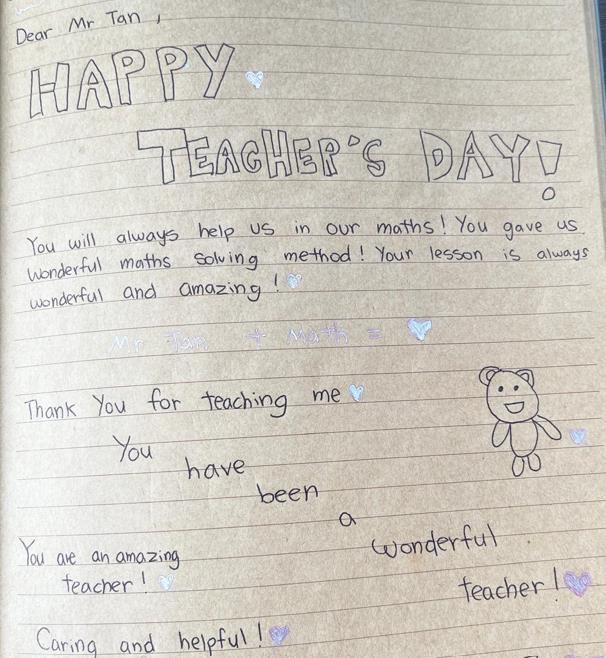 Dear Mr Tan,
HAPPY
TEACHER'S DAY!
You will always help us in our maths! You gave us
wonderful maths solving method! Your lesson is always
wonderful and amazing!
Mr Tan + Math =
Thank You for teaching me
You
have
been
a
wonderful
teacher!
You are an amazing
teacher!
Caring and helpful!